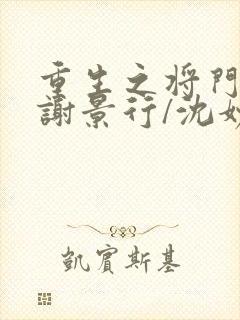 重生之将門
謝景行/沈妙
凱賓斯基